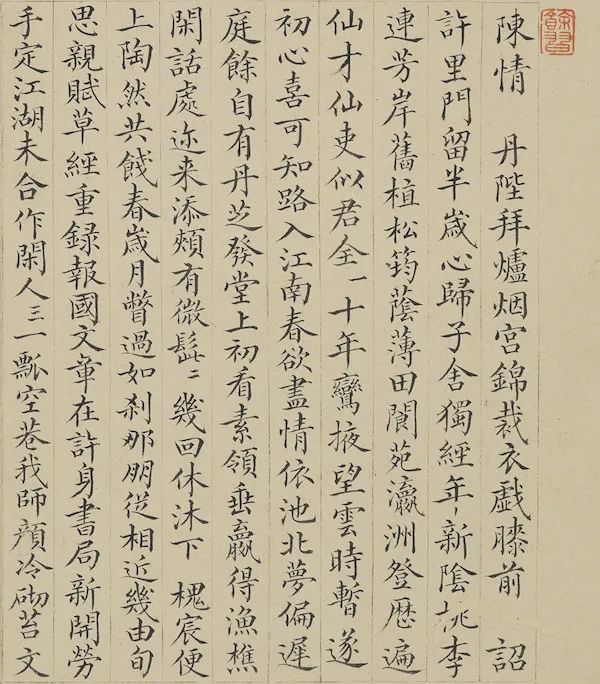 陳情 丹陛拜爐烟宫錦裁衣戲膝前 詔
許里門留半歲心歸子舍獨經年新陰桃李
連芳岸舊植松筠蔭薄田閬苑瀛洲登歷遍
仙才仙吏似君全一十年鸞掖望雲時暫遂
初心喜可知路入江南春欲盡情依池北夢偏遲
庭餘自有丹芝發堂上初看素領垂贏得漁樵
閑話處迩来添頰有微髭二幾回休沐下 槐宸便
上陶然共餞春歲月瞥過如刹那朋從相近幾由旬
思親賦草經重録報國文章在許身書局新開勞
手定江湖未合作閑人三一瓢空巷我師顔冷砌苔文